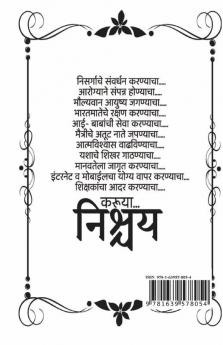 निसर्गाचे संवर्धन करण्याचा....
आरोग्याने संपन्न होण्याचा....
मौल्यवान आयुष्य जगण्याचा....
भारतमातेचे रक्षण करण्याचा....
आई- बाबांची सेवा करण्याचा....
मैत्रीचे अतूट नाते जपण्याचा....
आत्मविश्वास वाढविण्याचा....
यशाचे शिखर गाठण्याचा....
मानवतेला जागृत करण्याचा....
इंटरनेट व मोबाईलचा योग्य वापर करण्याचा....
शिक्षकांचा आदर करण्याचा....
करूया...
निश्चय
ISBN 978-1-63957-805-4
9 781639 578054